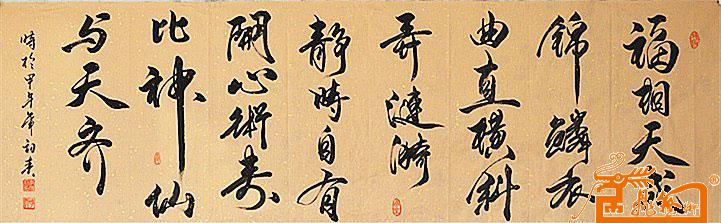 福相天成
锦鳞衣
曲直横斜
弄涟漪
静时自有
开心术寿
比神仙
与天齐
时于甲午年初春